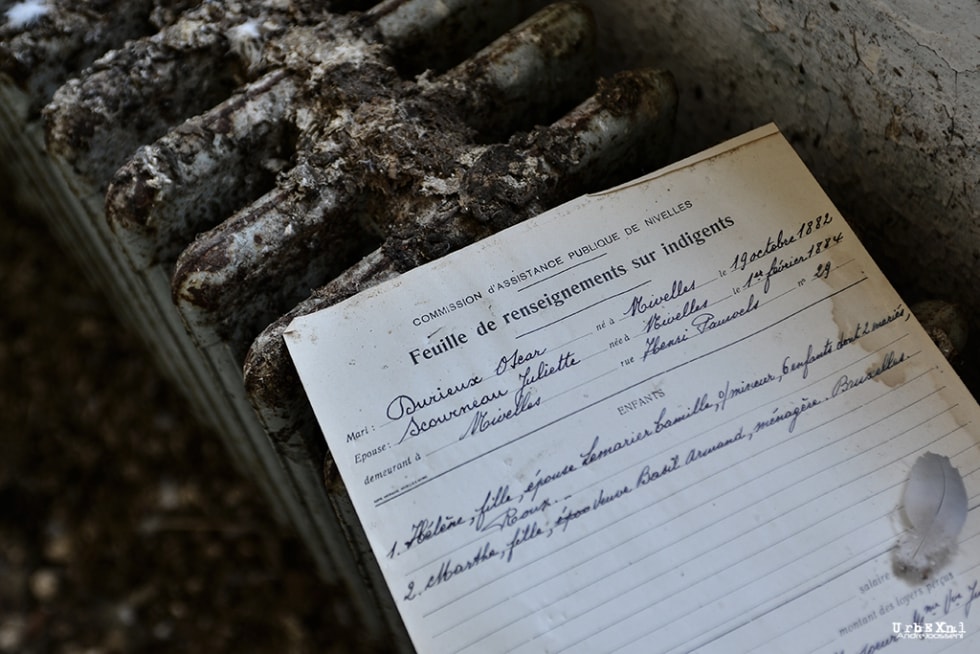 COMMISSION D'ASSISTANCE PUBLIQUE DE NIVELLES
Feuille de renseignements sur indigents
Mari : Durieux Oscar né à Nivelles le 19 octobre 1882
Epouse : Scourneau Juliette née à Nivelles le 1er février 1884
demeurant à Nivelles rue Henri Pauwels n° 29
ENFANTS
1. Hélène, fille, épouse Lemarier Camille, o/mineur, 6 enfants dont 2 mariés,
Roux.
2. Marthe, fille, veuve Basil Armand, ménagère. Bruxelles.
salaire
montant des loyers perçus
UrbEXnl